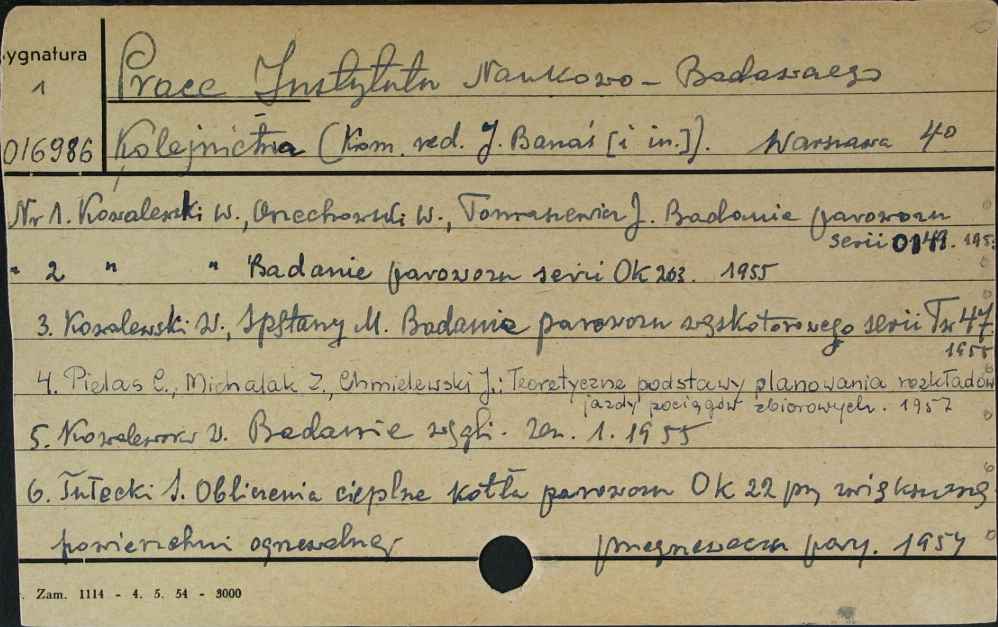 Sygnatura
1
016986
Prace Instytutu Naukowo-Badawczego
Kolejnictwa (Kom. red. J. Banaś [i in.]). Warszawa 4°
Nr 1. Kowalewski W., Orzechowski W., Tomaszewicz J. Badanie parowozu
serii 0149. 195
" 2 " " Badanie parowozu serii Ok 203. 1955
3. Kowalewski W., Spętany M. Badanie parowozu wąskotorowego serii Tw 47
1955
4. Pielas C., Michalak Z., Chmielewski J.: Teoretyczne podstawy planowania rozkładów
jazdy pociągów zbiorowych. 1957
5. Kowalewski W. Badanie węgli. Zesz. 1. 1955
6. Tułecki S. Obliczenia cieplne kotła parowozu Ok 22 przy zwiększonej
powierzchni ogrzewalnej przegrzewacza pary. 1957
Zam. 1114 - 4. 5. 54 - 3000